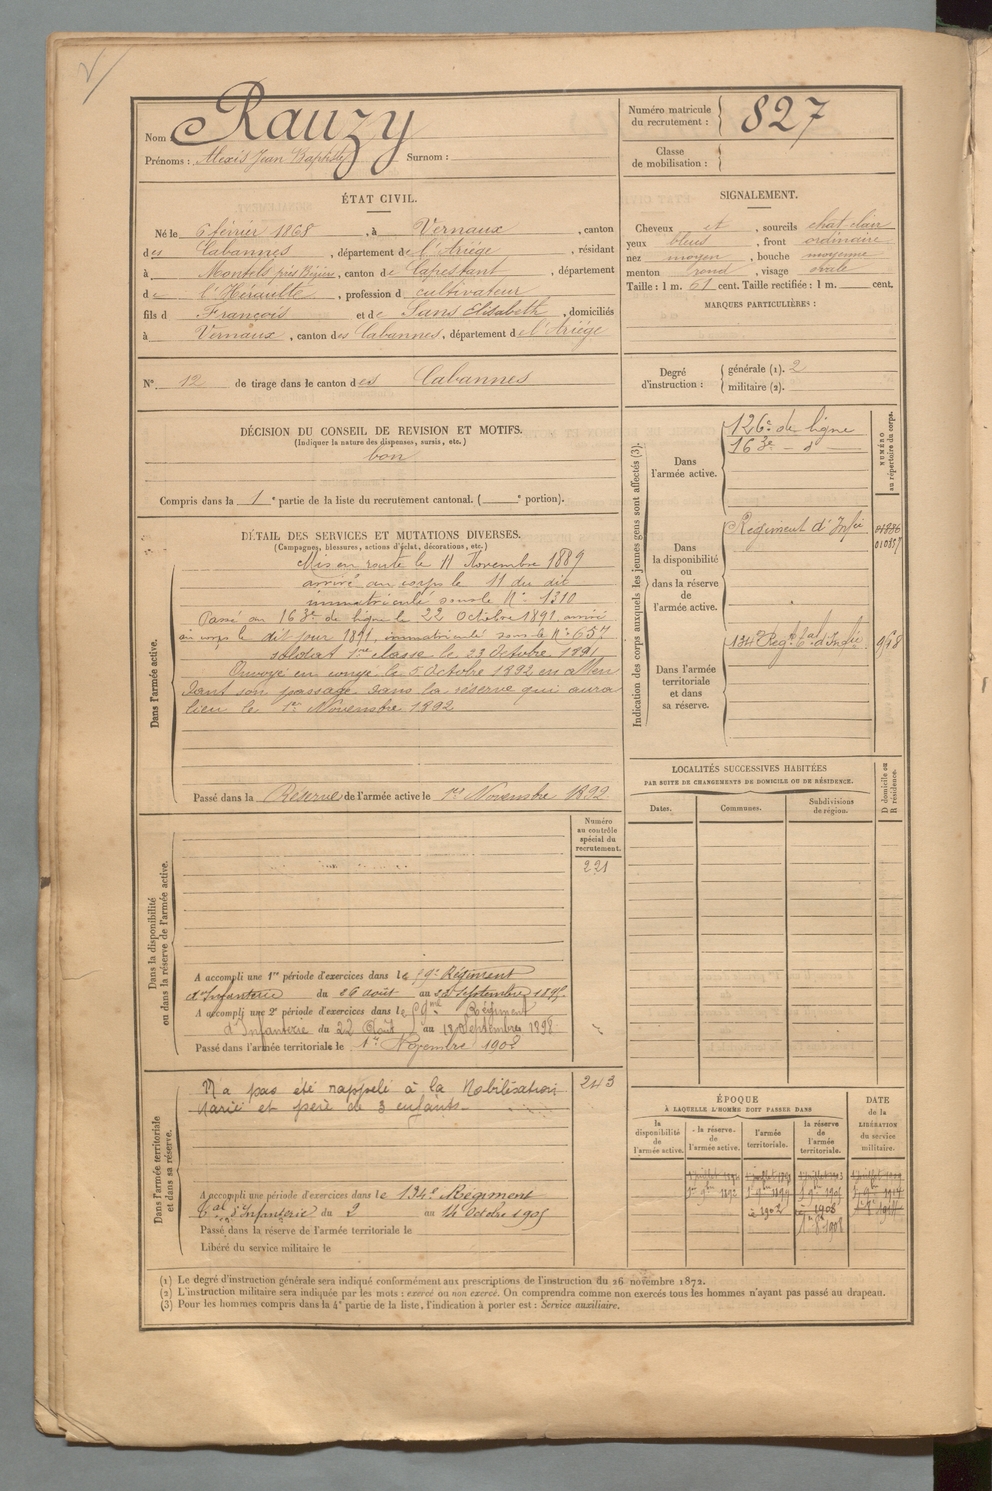 Nom Rauzy
Prénoms : Alexis Jean Baptiste Surnom :
Numéro matricule du recrutement : 827
Classe de mobilisation :
ÉTAT CIVIL.
Né le 6 février 1868, à Vernaux, canton
des Cabannes, département de l'Ariège, résidant
à Montels près Béziers, canton de Capestant, département
de l'Héraulte, profession d cultivateur
fils d François et de Sans Elisabeth, domiciliés
à Vernaux, canton des Cabannes, département de l'Ariège
SIGNALEMENT.
Cheveux et, sourcils chat clair
yeux bleus, front ordinaire
nez moyen, bouche moyenne
menton rond, visage ovale
Taille : 1 m. 61 cent. Taille rectifiée : 1 m. cent.
MARQUES PARTICULIÈRES :
N° 12 de tirage dans le canton des Cabannes
Degré d'instruction : générale (1). 2
militaire (2).
DÉCISION DU CONSEIL DE REVISION ET MOTIFS.
(Indiquer la nature des dispenses, sursis, etc.)
bon
Compris dans la 1e partie de la liste du recrutement cantonal. ( e portion).
DÉTAIL DES SERVICES ET MUTATIONS DIVERSES.
(Campagnes, blessures, actions d'éclat, décorations, etc.)
Dans l'armée active.
Mis en route le 11 Novembre 1889
arrivé au corps le 11 du dit
immatriculé sous le N° 1310
Passé au 163e de ligne le 22 Octobre 1891, arrivé
au corps le dit jour 1891, immatriculé sous le N° 657
soldat 1re classe le 23 Octobre 1891
Envoyé en congé le 5 Octobre 1892 en atten
dant son passage dans la réserve qui aura
lieu le 1er Novembre 1892
Passé dans la Réserve de l'armée active le 1er Novembre 1892
Indication des corps auxquels les jeunes gens sont affectés (3).
NUMÉRO au répertoire du corps.
Dans l'armée active.
126e de ligne
163e - d° -
Dans la disponibilité ou dans la réserve de l'armée active.
Régiment d'Infie
010857
Dans l'armée territoriale et dans sa réserve.
134e Regt tal d'Infie
LOCALITÉS SUCCESSIVES HABITÉES
PAR SUITE DE CHANGEMENTS DE DOMICILE OU DE RÉSIDENCE.
D domicile ou R résidence.
Dates. Communes. Subdivisions de région.
Numéro au contrôle spécial du recrutement.
221
Dans la disponibilité ou dans la réserve de l'armée active.
A accompli une 1re période d'exercices dans le 59e Régiment
d'Infanterie du 26 août au 22 septembre 1895
A accompli une 2e période d'exercices dans le 59me Régiment
d'Infanterie du 22 Août au 18 Septembre 1898
Passé dans l'armée territoriale le 1er Novembre 1902
Dans l'armée territoriale et dans sa réserve.
N'a pas été rappelé à la Mobilisation
Marié et père de 3 enfants
243
A accompli une période d'exercices dans le 134e Régiment
tal d'Infanterie du 2 au 14 Octobre 1905
Passé dans la réserve de l'armée territoriale le
Libéré du service militaire le
ÉPOQUE
À LAQUELLE L'HOMME DOIT PASSER DANS
la disponibilité de l'armée active.
la réserve de l'armée active.
l'armée territoriale.
la réserve de l'armée territoriale.
DATE de la LIBÉRATION du service militaire.
1er 9bre 1892
1902
1908
(1) Le degré d'instruction générale sera indiqué conformément aux prescriptions de l'instruction du 26 novembre 1872.
(2) L'instruction militaire sera indiquée par les mots : exercé ou non exercé. On comprendra comme non exercés tous les hommes n'ayant pas passé au drapeau.
(3) Pour les hommes compris dans la 4e partie de la liste, l'indication à porter est : Service auxiliaire.